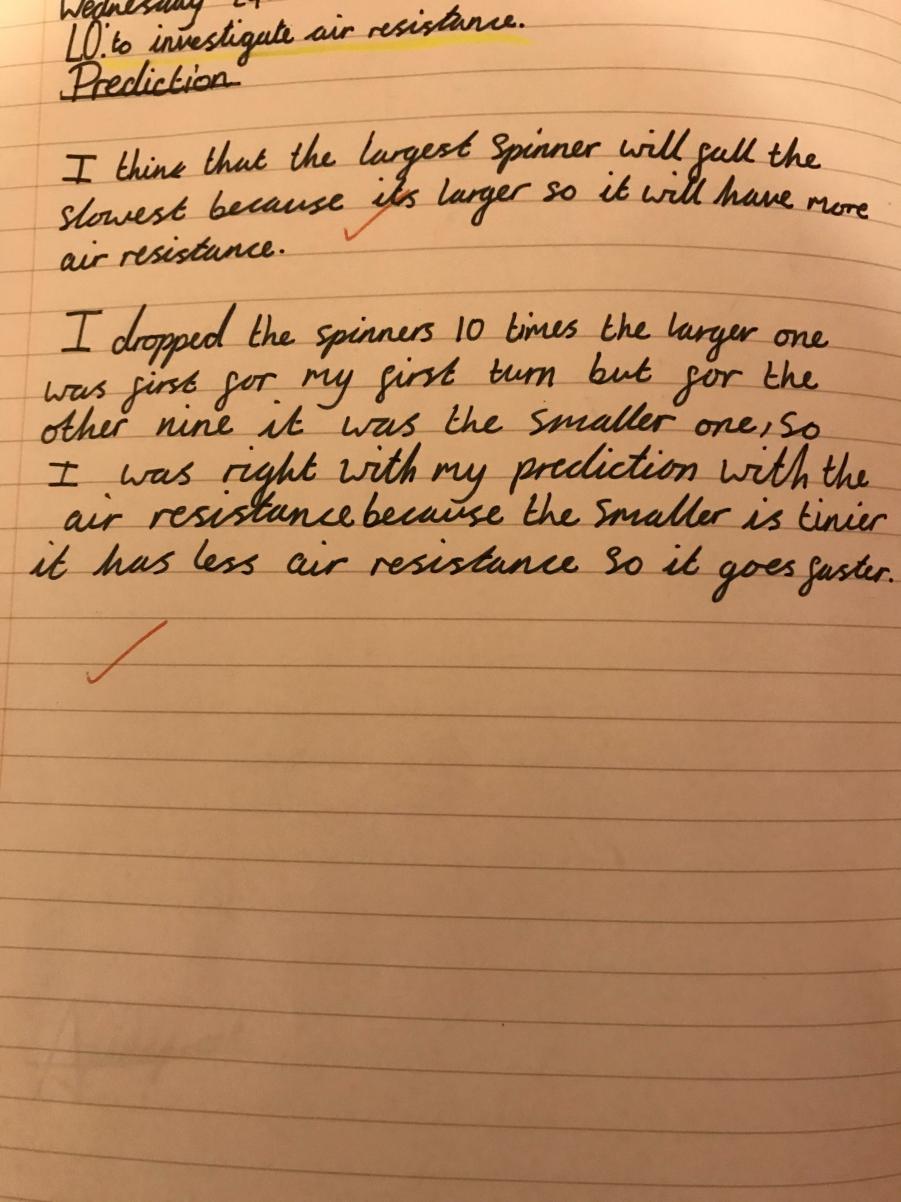 Wednesday
LO: to investigate air resistance.
Prediction
I think that the largest spinner will fall the
slowest because its larger so it will have more
air resistance.
I dropped the spinners 10 times the larger one
was first for my first turn but for the
other nine it was the smaller one, so
I was right with my prediction with the
air resistance because the smaller is tinier
it has less air resistance so it goes faster.